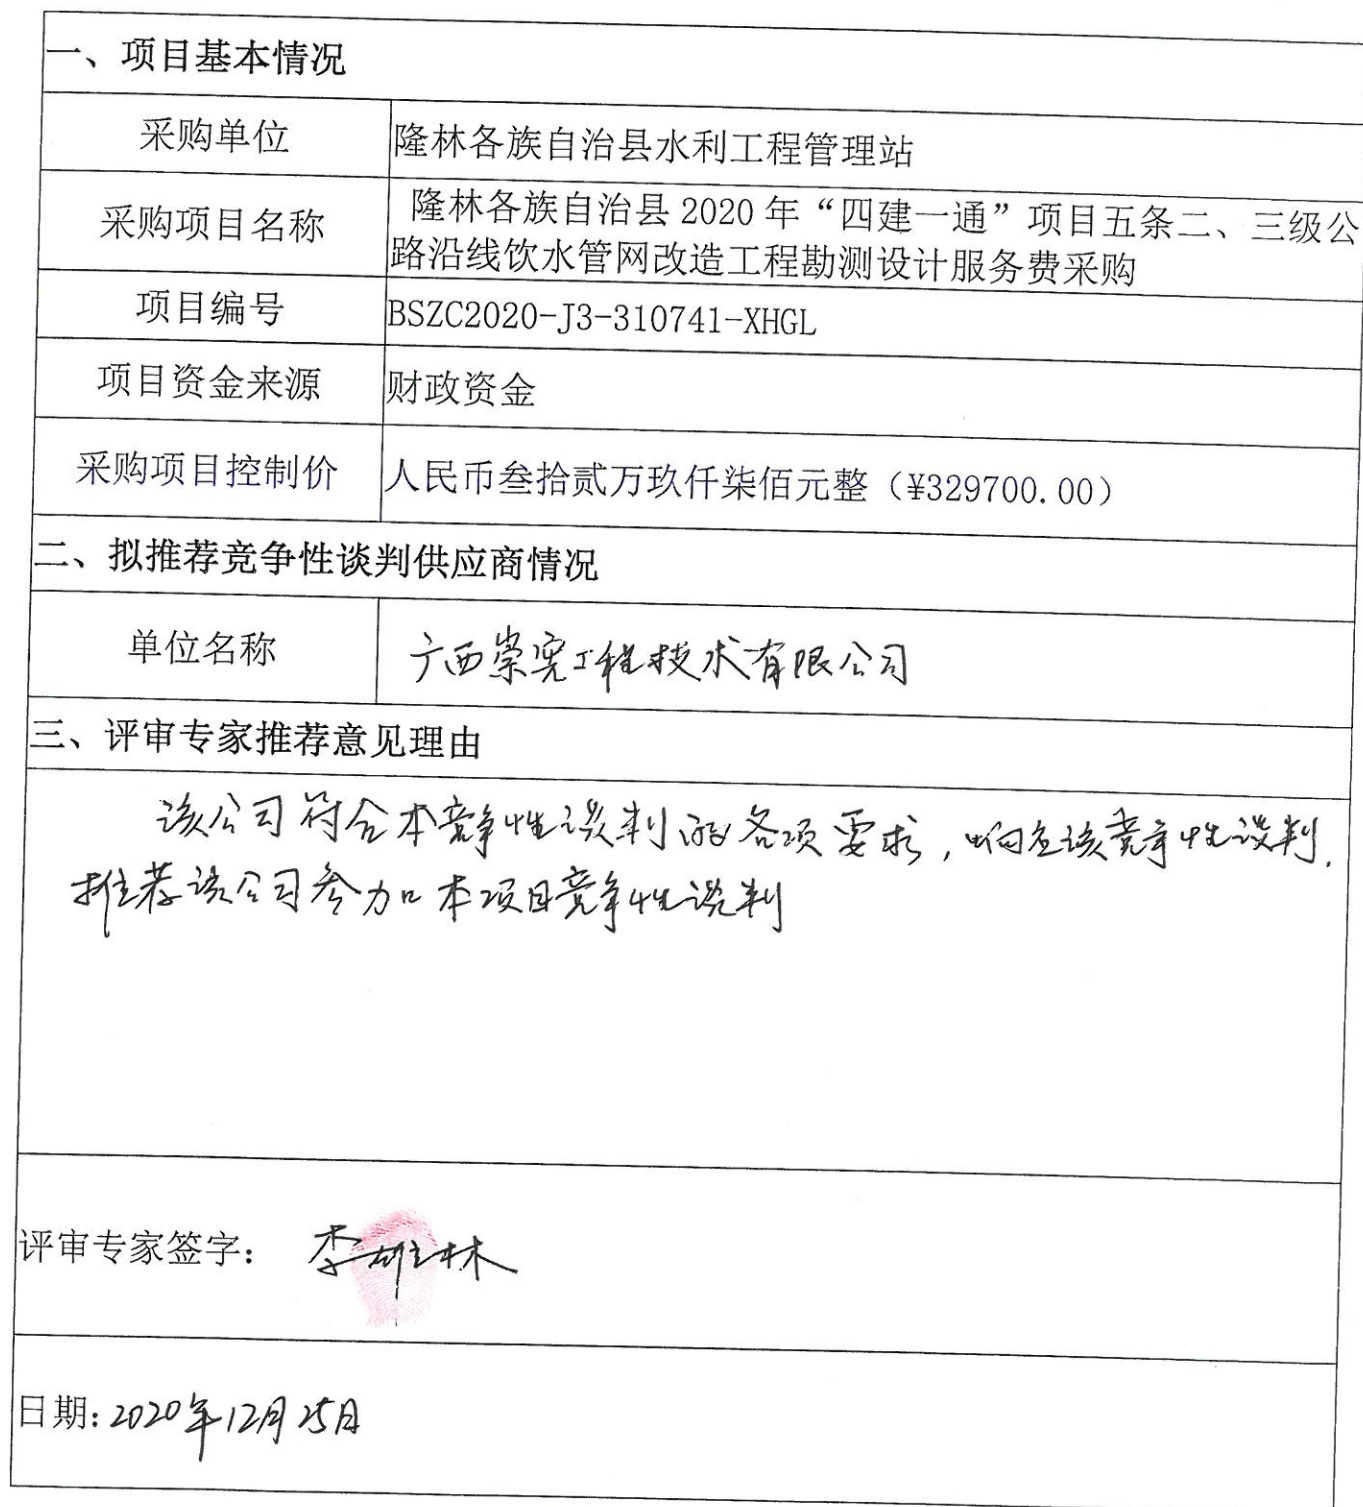 一、项目基本情况
采购单位
隆林各族自治县水利工程管理站
采购项目名称
隆林各族自治县 2020 年“四建一通”项目五条二、三级公
路沿线饮水管网改造工程勘测设计服务费采购
项目编号
BSZC2020-J3-310741-XHGL
项目资金来源
财政资金
采购项目控制价
人民币叁拾贰万玖仟柒佰元整（¥329700.00）
二、拟推荐竞争性谈判供应商情况
单位名称
广西崇宪工程技术有限公司
三、评审专家推荐意见理由
该公司符合本竞争性谈判的各项要求，响应该竞争性谈判，
推荐该公司参加本项目竞争性谈判
评审专家签字：李雄林
日期：2020年12月25日